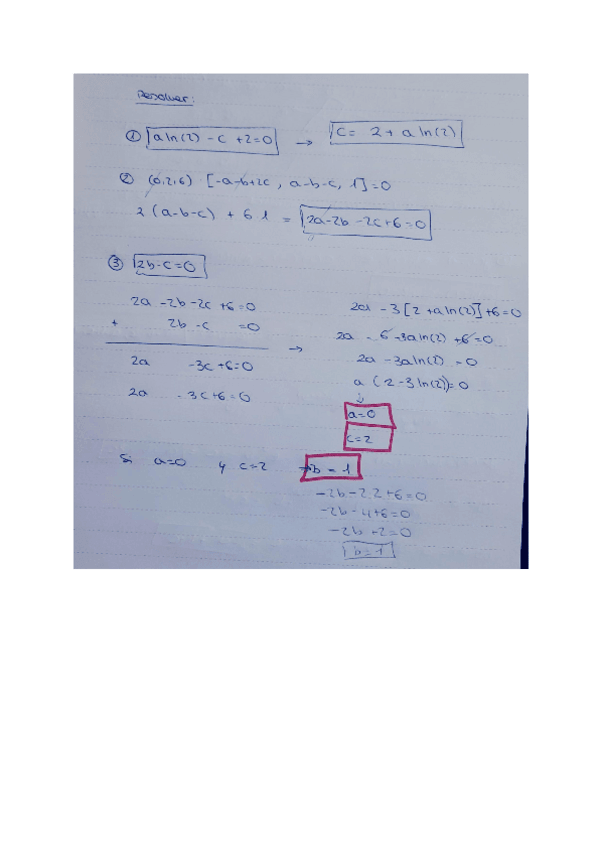 Resolver:
① a ln(2) - c + 2 = 0 → c = 2 + a ln(2)
② (0,2,6) [-a-b+2c, a-b-c, 1] = 0
2(a-b-c) + 6·1 = 2a-2b-2c+6=0
③ 2b-c=0
2a -2b-2c+6=0
+ 2b-c =0
2a -3c+6=0
2a -3c+6=0
→ 2a - 3[2+a ln(2)]+6=0
2a - 6 -3a ln(2) +6=0
2a -3a ln(2) =0
a (2-3 ln(2))=0
↓
a=0
c=2
Si a=0 y c=2 → b = 1
-2b-2·2+6=0
-2b-4+6=0
-2b+2=0
b=1